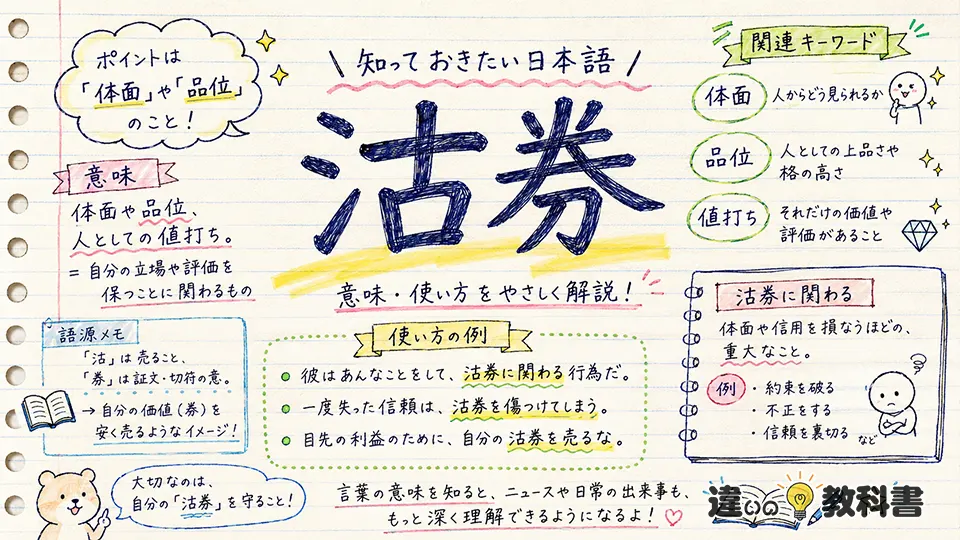 ポイントは
「体面」や「品位」
のこと！
知っておきたい日本語
沽券
意味・使い方をやさしく解説！
意味
体面や品位、
人としての値打ち。
= 自分の立場や評価を
保つことに関わるもの
語源メモ
「沽」は売ること、
「券」は証文・切符の意。
→ 自分の価値（券）を
安く売るようなイメージ！
大切なのは、
自分の「沽券」を守ること！
使い方の例
彼はあんなことをして、沽券に関わる行為だ。
一度失った信頼は、沽券を傷つけてしまう。
目先の利益のために、自分の沽券を売るな。
言葉の意味を知ると、ニュースや日常の出来事も、
もっと深く理解できるようになるよ！
関連キーワード
体面 人からどう見られるか
品位 人としての上品さや
格の高さ
値打ち それだけの価値や
評価があること
沽券に関わる
体面や信用を損なうほどの、
重大なこと。
例 ・約束を破る
・不正をする
・信頼を裏切る など
違いの教科書